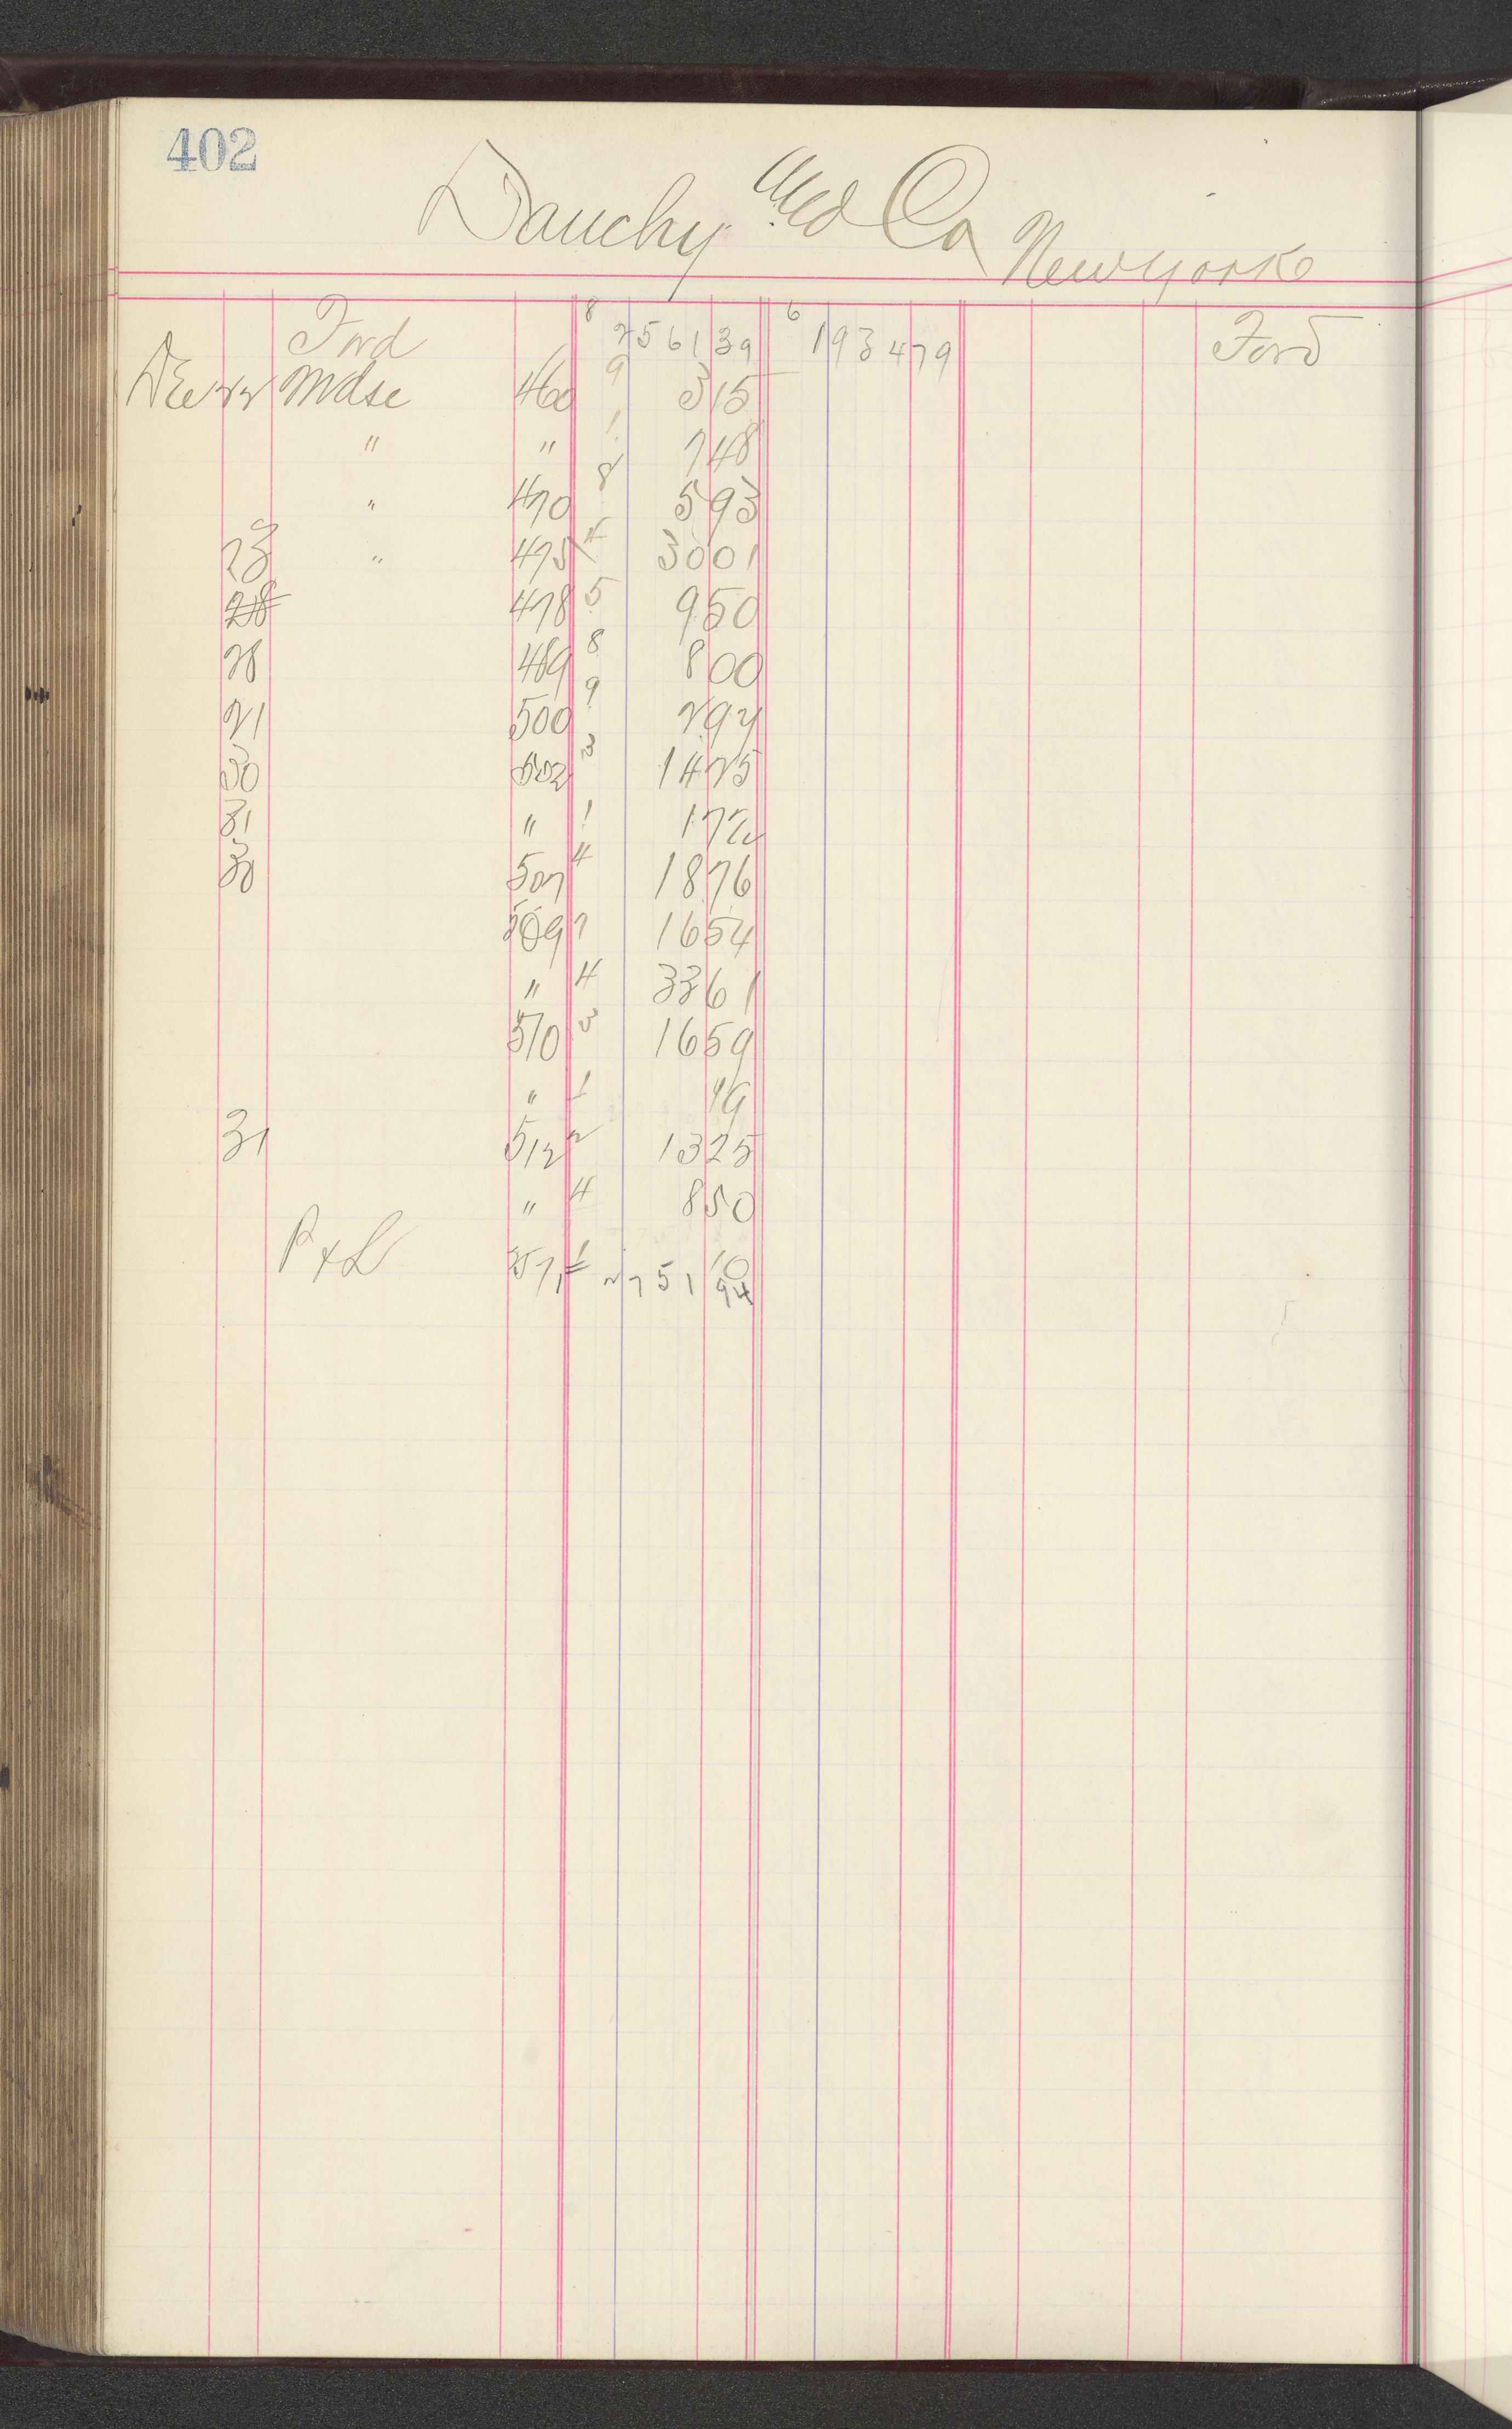 402
Dauchy Co New York
Ford 8 2561 39 6 1934 79 Ford
Dec 22 Mdse 460 9 3 15
" " 1 7 48
" 470 8 5 93
23 " 475 4 30 01
28 478 5 9 50
28 489 8 8 00
21 500 9 2 94
30 502 3 14 25
31 " 1 1 72
30 507 4 18 76
509 7 16 54
" 4 33 61
510 3 16 59
" 1 79
31 512 2 13 25
" 4 8 50
P & L 571 1 10
2751 94